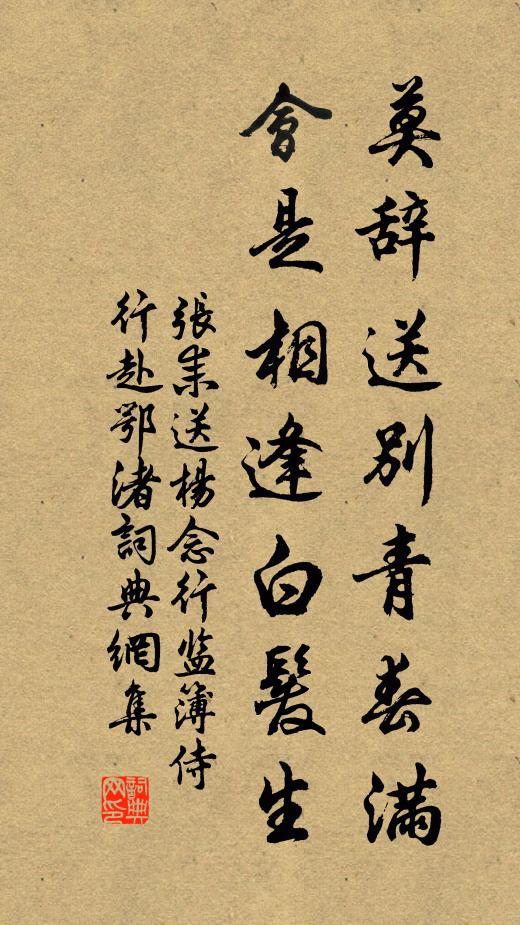 莫辞送别青春满
會是相逢白髮生
張耒送楊念行监簿侍
行赴鄂渚詞典網集
詞典
网印